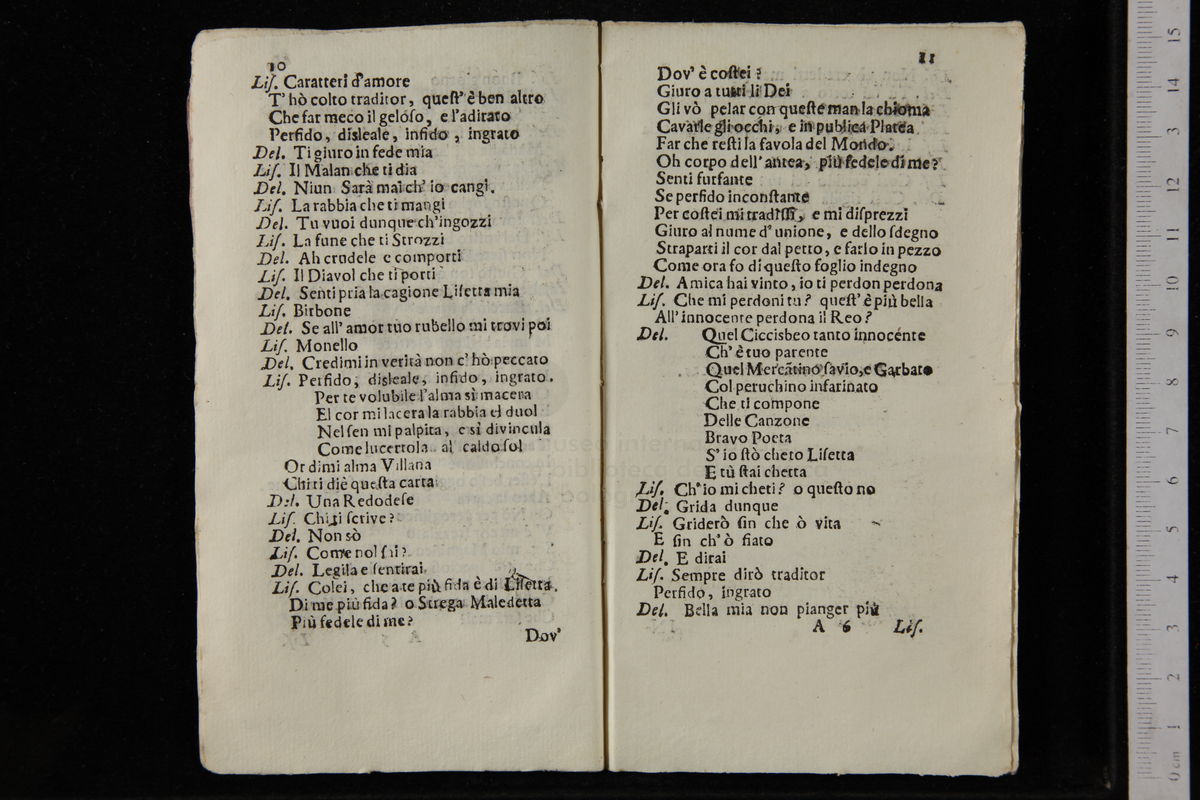 10
Liſ. Caratteri d'amore
T' hò colto traditor, queſt' è ben altro
Che far meco il geloſo, e l'adirato
Perfido, disleale, infido, ingrato
Del. Ti giuro in fede mia
Liſ. Il Malan che ti dia
Del. Niun Sarà mai ch' io cangi.
Liſ. La rabbia che ti mangi
Del. Tu vuoi dunque ch'ingozzi
Liſ. La fune che ti Strozzi
Del. Ah crudele e comporti
Liſ. Il Diavol che ti porti
Del. Senti pria la cagione Liſetta mia
Liſ. Birbone
Del. Se all' amor tuo rubello mi trovi poi
Liſ. Monello
Del. Credimi in verità non c' hò peccato
Liſ. Perfido, disleale, infido, ingrato.
Per te volubile l'alma si macera
El cor mi lacera la rabbia el duol
Nel ſen mi palpita, e si divincula
Come lucertola al caldo ſol
Or dimi alma Villana
Chi ti diè queſta carta
Del. Una Redodeſe
Liſ. Chi ti ſcrive?
Del. Non sò
Liſ. Come nol ſai?
Del. Legila e ſentirai
Liſ. Colei, che a te più fida è di Liſetta.
Di me più fida? o Strega Maledetta
Più fedele di me?
Dov'
11
Dov' è coſtei?
Giuro a tutti li Dei
Gli vò pelar con queſte man la chioma
Cavarle gli occhi, e in publica Platea
Far che reſti la favola del Mondo.
Oh corpo dell' antea, più fedele di me?
Senti furfante
Se perfido inconſtante
Per coſtei mi tradiſſi, e mi diſprezzi
Giuro al nume d' unione, e dello ſdegno
Straparti il cor dal petto, e farlo in pezzo
Come ora fo di queſto foglio indegno
Del. Amica hai vinto, io ti perdon perdona
Liſ. Che mi perdoni tu? queſt' è più bella
All' innocente perdona il Reo?
Del. Quel Ciccisbeo tanto innocénte
Ch' è tuo parente
Quel Mercãtino ſavio, e Garbato
Col peruchino infarinato
Che ti compone
Delle Canzone
Bravo Poeta
S' io ſtò cheto Liſetta
E tù ſtai chetta
Liſ. Ch' io mi cheti? o queſto no
Del. Grida dunque
Liſ. Griderò ſin che ò vita
E ſin ch' ò fiato
Del. E dirai
Liſ. Sempre dirò traditor
Perfido, ingrato
Del. Bella mia non pianger più
A 6 Liſ.